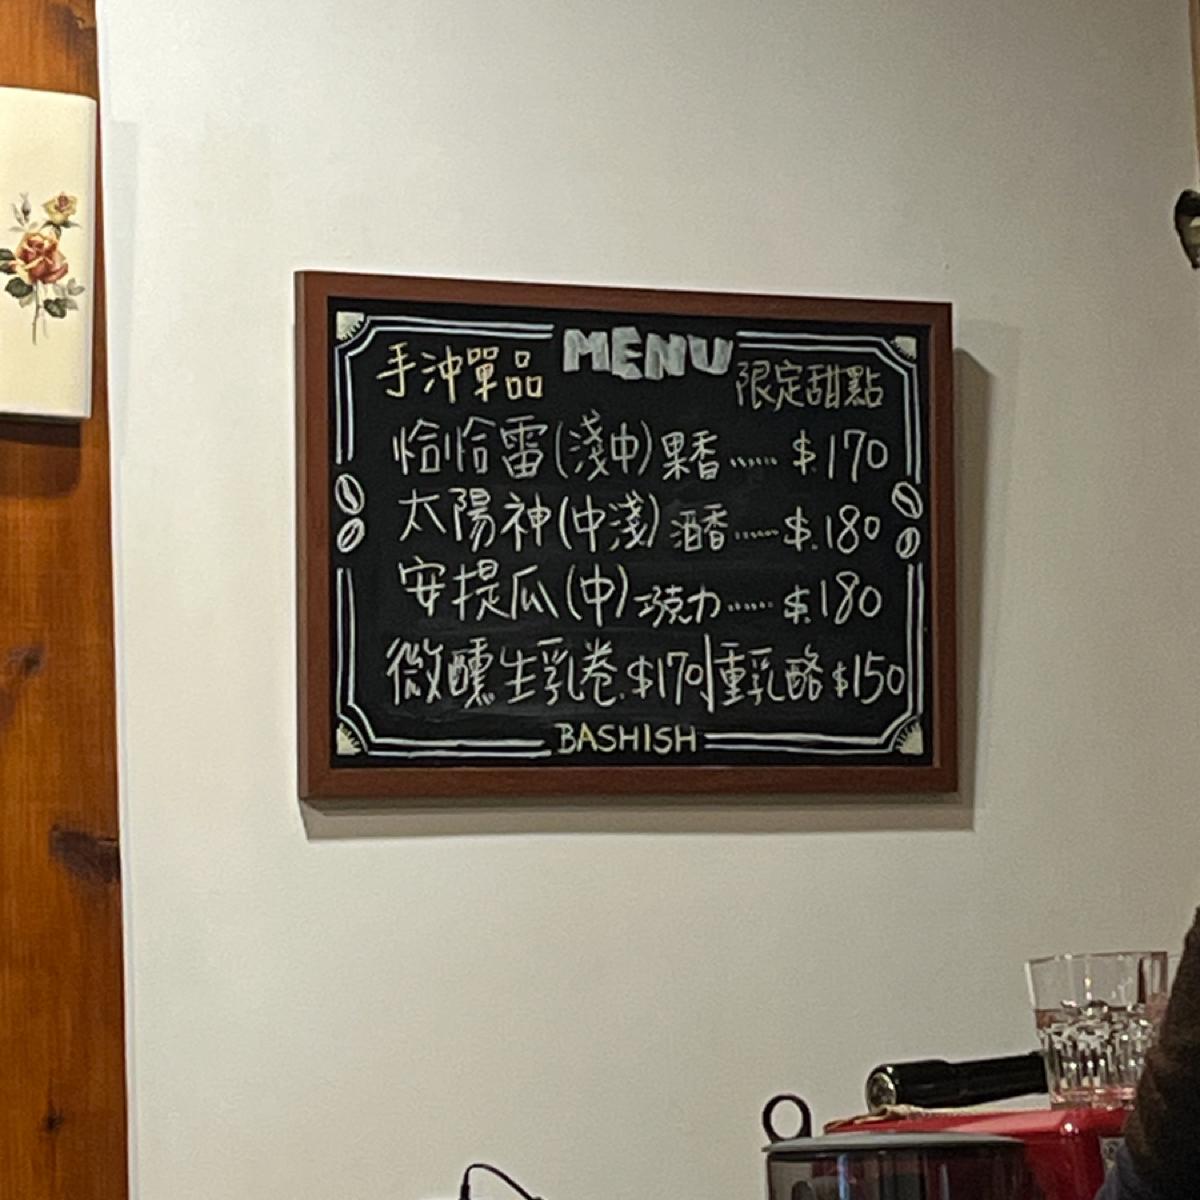 MENU
手沖單品 限定甜點
恰恰雷(淺中)果香...... $.170
太陽神(中淺)酒香...... $.180
安提瓜(中)巧克力...... $.180
微醺生乳卷.$170|重乳酪$150
BASHISH